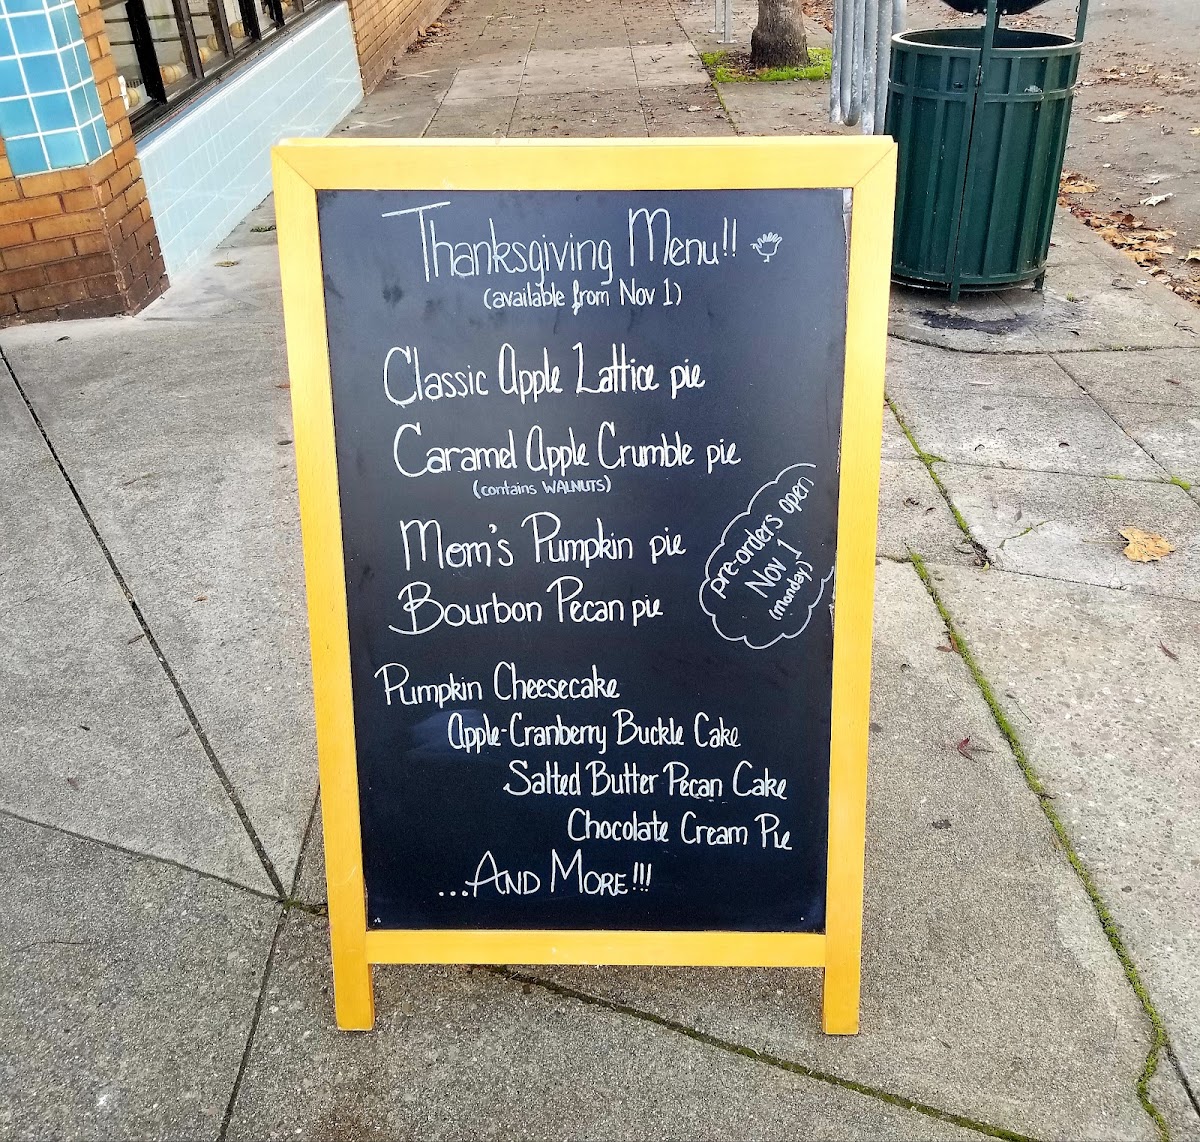 Thanksgiving Menu!!
(available from Nov 1)
Classic Apple Lattice pie
Caramel Apple Crumble pie
(contains WALNUTS)
Mom's Pumpkin pie
Bourbon Pecan pie
pre-orders open
Nov 1
(Monday)
Pumpkin Cheesecake
Apple-Cranberry Buckle Cake
Salted Butter Pecan Cake
Chocolate Cream Pie
...AND MORE!!!